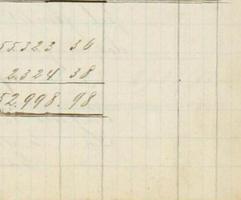 55323 36
2.324 38
52.998.98